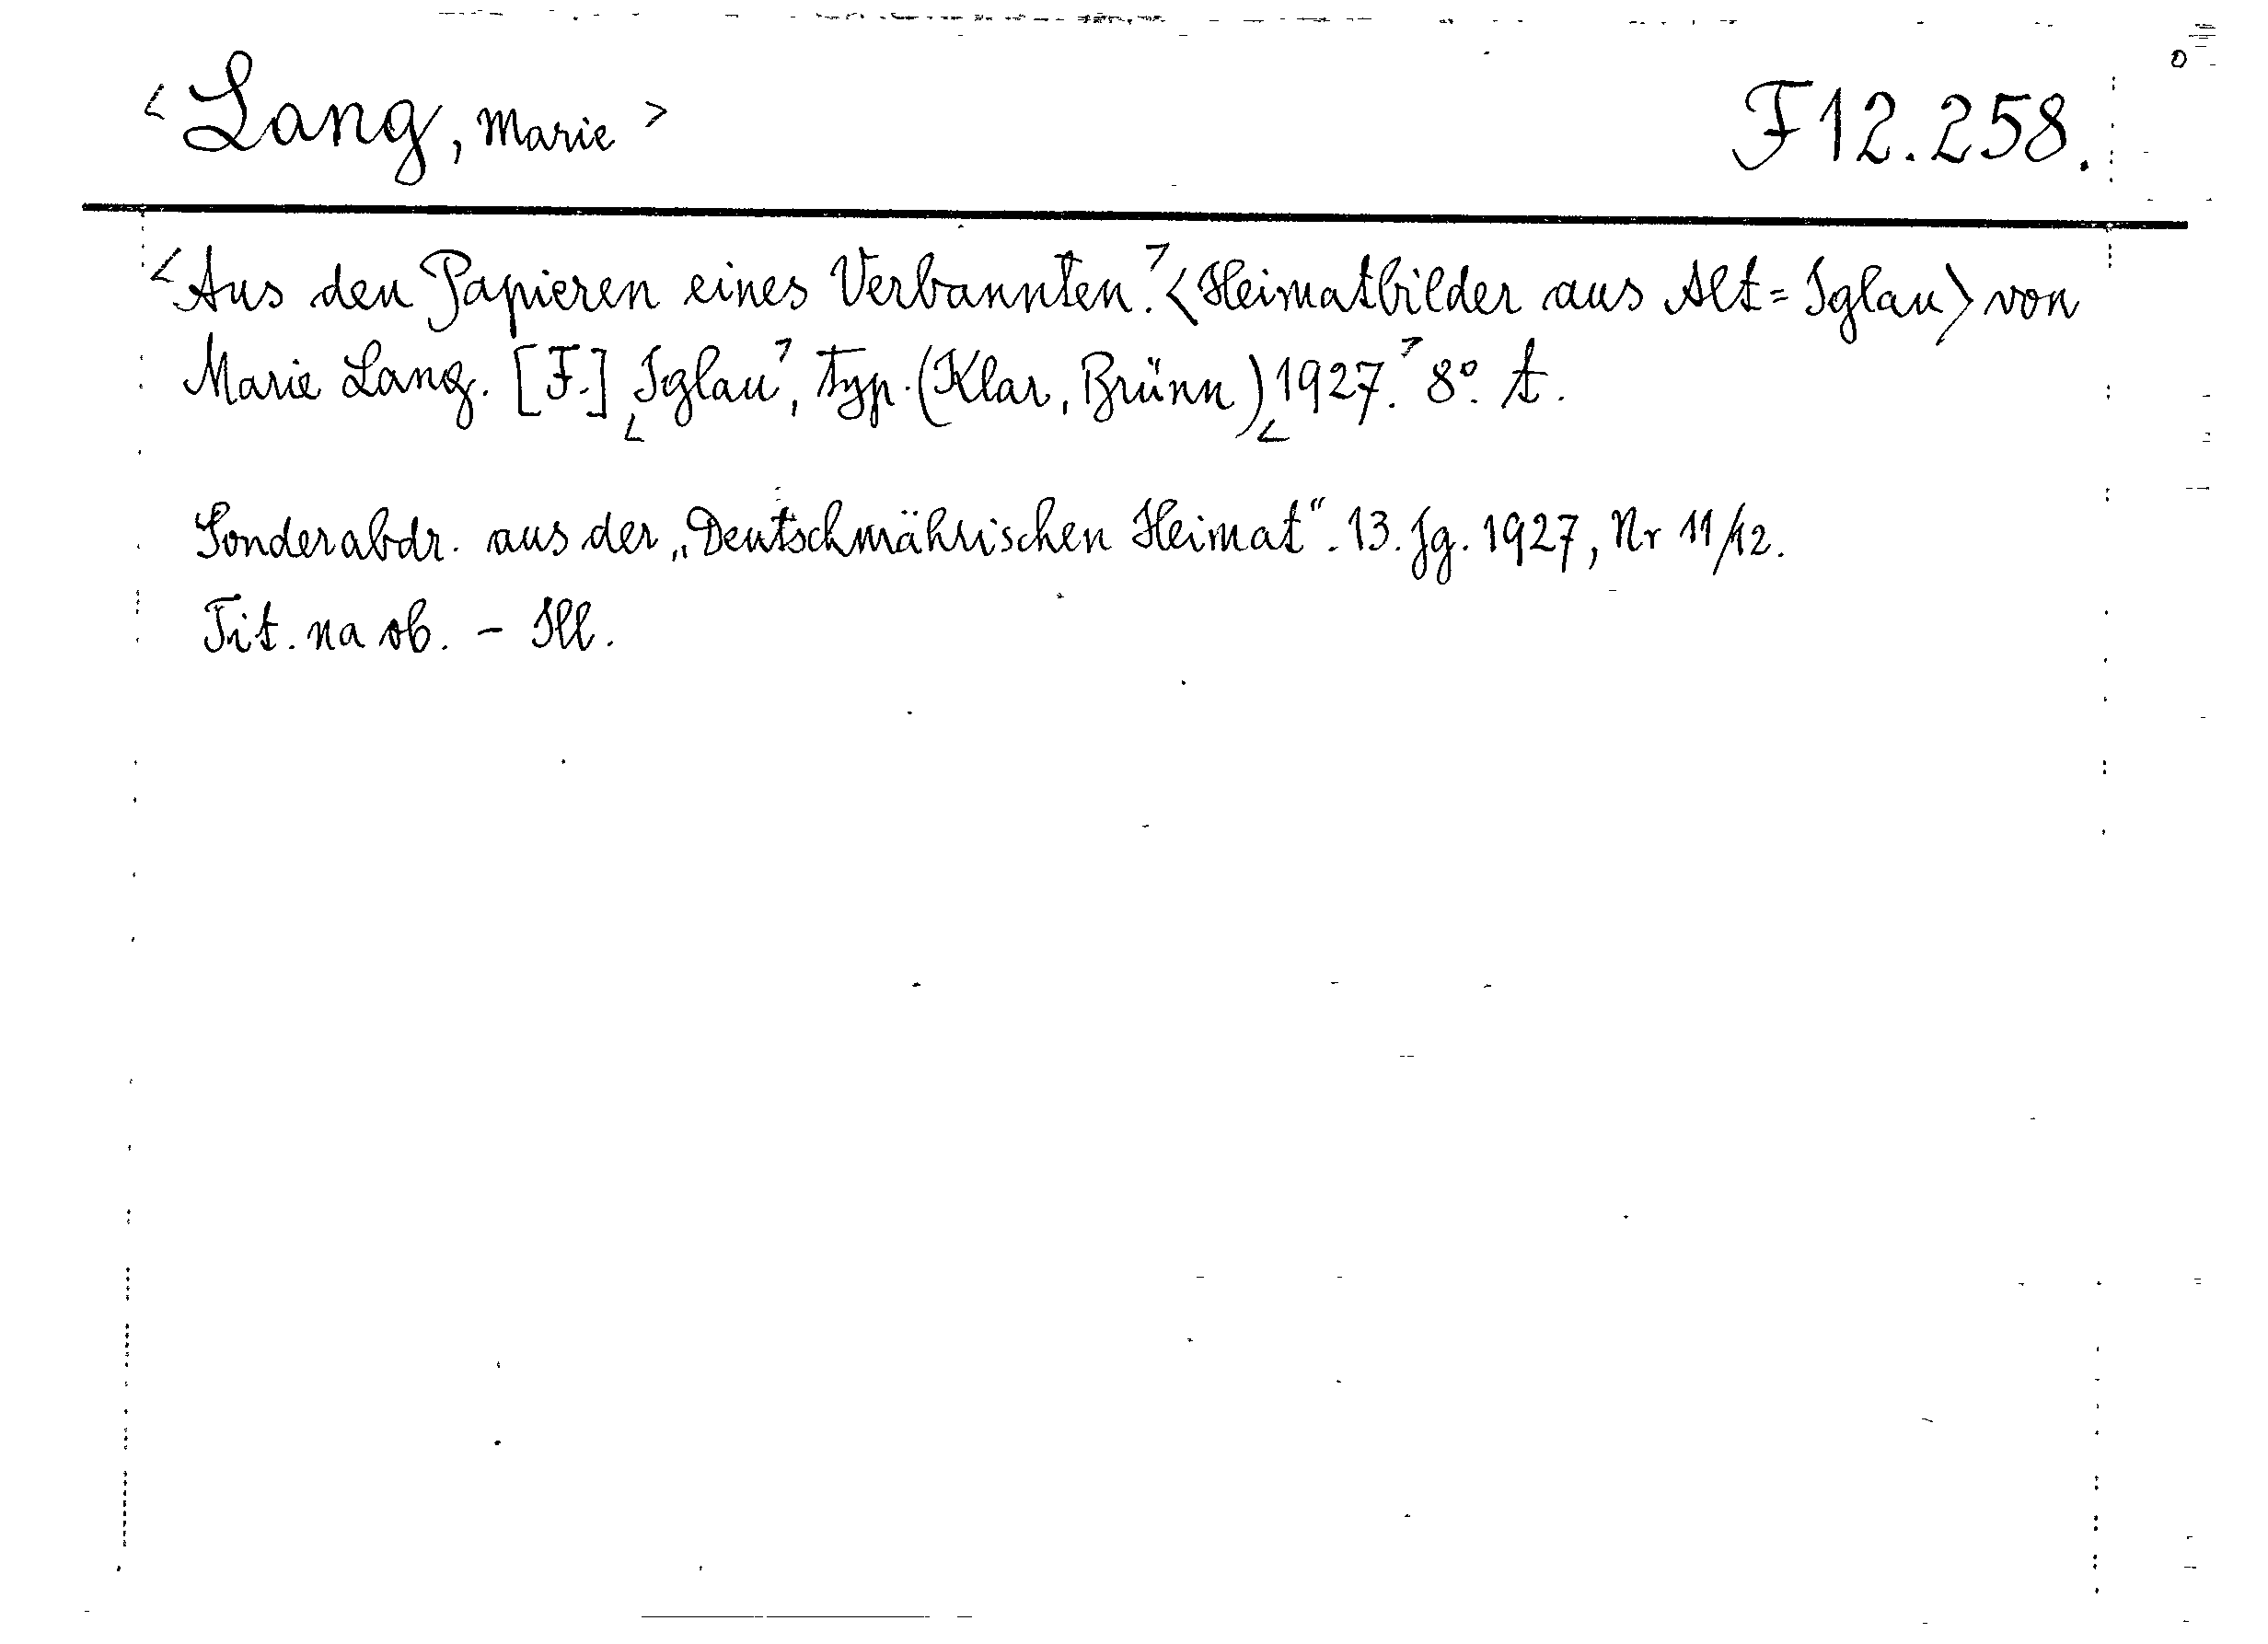 <Lang, Marie> F 12.258.
<Aus den Papieren eines Verbannten.> <Heimatbilder aus Alt=Iglau> von
Marie Lang. [F.] <Iglau>, Typ. (Klar, Brünn) <1927.> 8°. A.
Sonderabdr. aus der „Deutschmährischen Heimat“. 13. Jg. 1927, Nr 11/12.
Tit. na ob. - Ill.